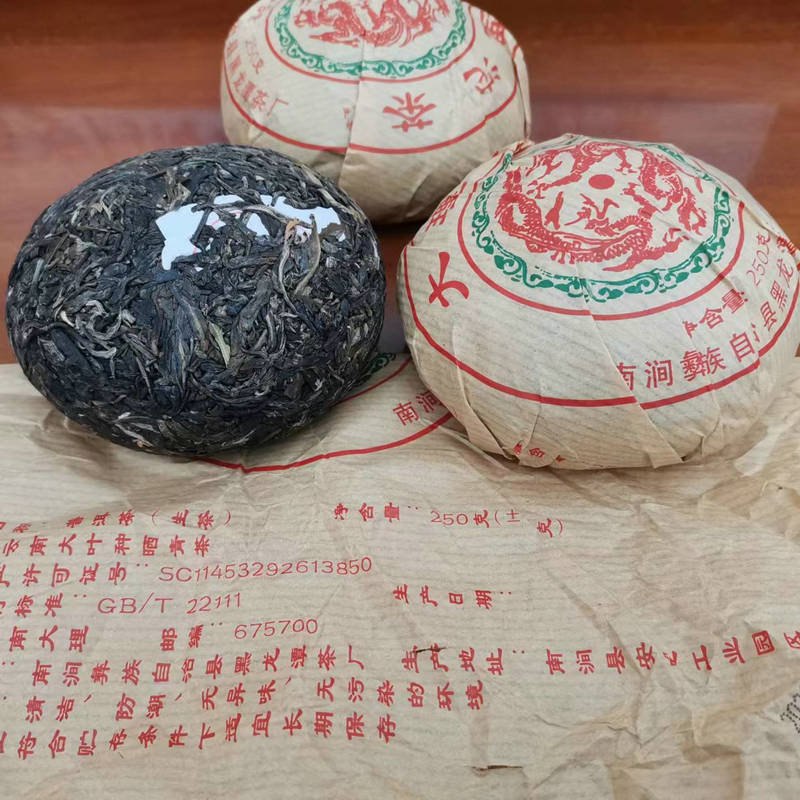 250克
龙潭茶厂
茶
沱
大
净含量:250克
南涧彝族自治县黑龙潭
南涧
普洱茶(生茶)
净含量:250克(±
克)
云南大叶种晒青茶
许可证号:SC11453292613850
标准:GB/T 22111
生产日期:
南大理 邮编:675700
南涧彝族自治县黑龙潭茶厂 生产地址:南涧县安 工业园区
清洁、防潮、无异味、无污染的环境
符合贮存条件下适宜长期保存